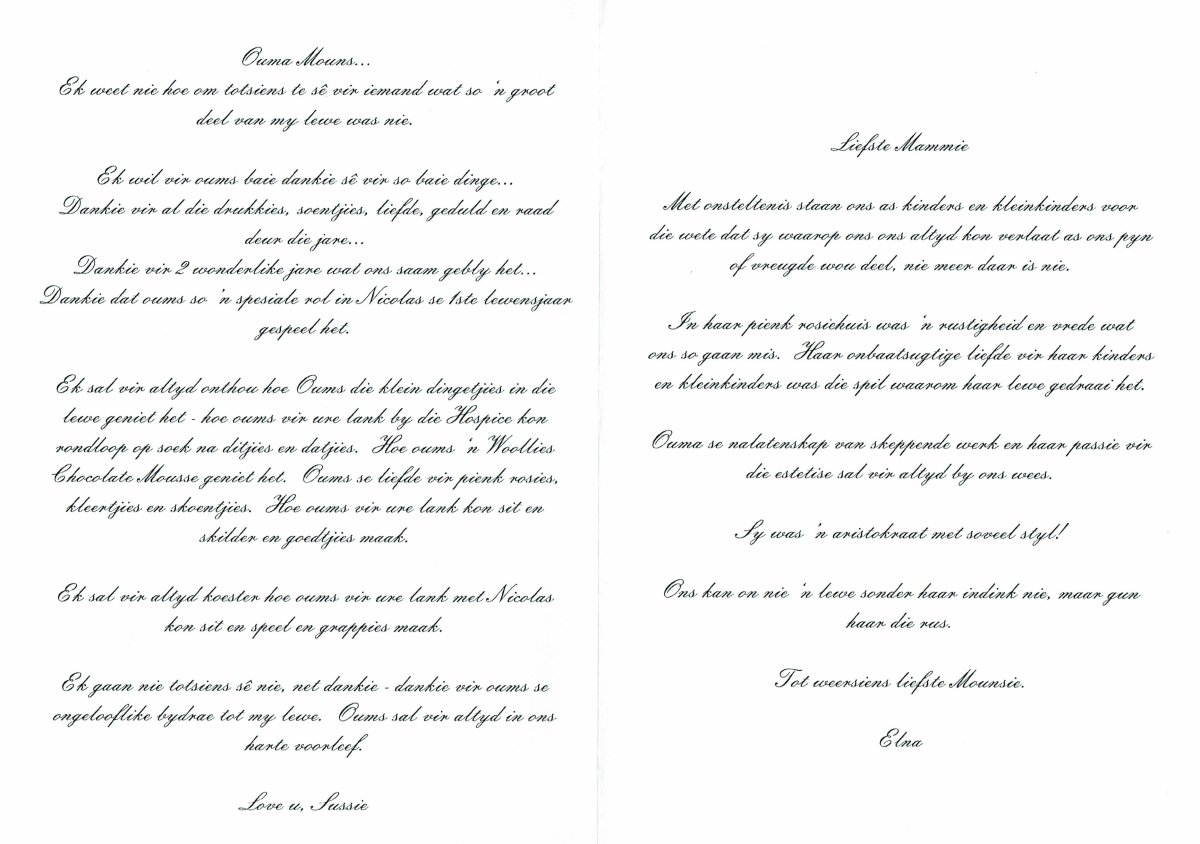 Ouma Mouns...
Ek weet nie hoe om totsiens te sê vir iemand wat so 'n groot
deel van my lewe was nie.
Ek wil vir oums baie dankie sê vir so baie dinge...
Dankie vir al die drukkies, soentjies, liefde, geduld en raad
deur die jare...
Dankie vir 2 wonderlike jare wat ons saam gebly het...
Dankie dat oums so 'n spesiale rol in Nicolas se 1ste lewensjaar
gespeel het.
Ek sal vir altyd onthou hoe Oums die klein dingetjies in die
lewe geniet het - hoe oums vir ure lank by die Hospice kon
rondloop op soek na ditjies en datjies. Hoe oums 'n Woollies
Chocolate Mousse geniet het. Oums se liefde vir pienk rosies,
kleertjies en skoentjies. Hoe oums vir ure lank kon sit en
skilder en goedtjies maak.
Ek sal vir altyd koester hoe oums vir ure lank met Nicolas
kon sit en speel en grappies maak.
Ek gaan nie totsiens sê nie, net dankie - dankie vir oums se
ongelooflike bydrae tot my lewe. Oums sal vir altyd in ons
harte voorleef.
Love u, Sussie
Liefste Mammie
Met onsteltenis staan ons as kinders en kleinkinders voor
die wete dat sy waarop ons ons altyd kon verlaat as ons pyn
of vreugde wou deel, nie meer daar is nie.
In haar pienk rosiehuis was 'n rustigheid en vrede wat
ons so gaan mis. Haar onbaatsugtige liefde vir haar kinders
en kleinkinders was die spil waarom haar lewe gedraai het.
Ouma se nalatenskap van skeppende werk en haar passie vir
die estetise sal vir altyd by ons wees.
Sy was 'n aristokraat met soveel styl!
Ons kan on nie 'n lewe sonder haar indink nie, maar gun
haar die rus.
Tot weersiens liefste Mounsie.
Elna